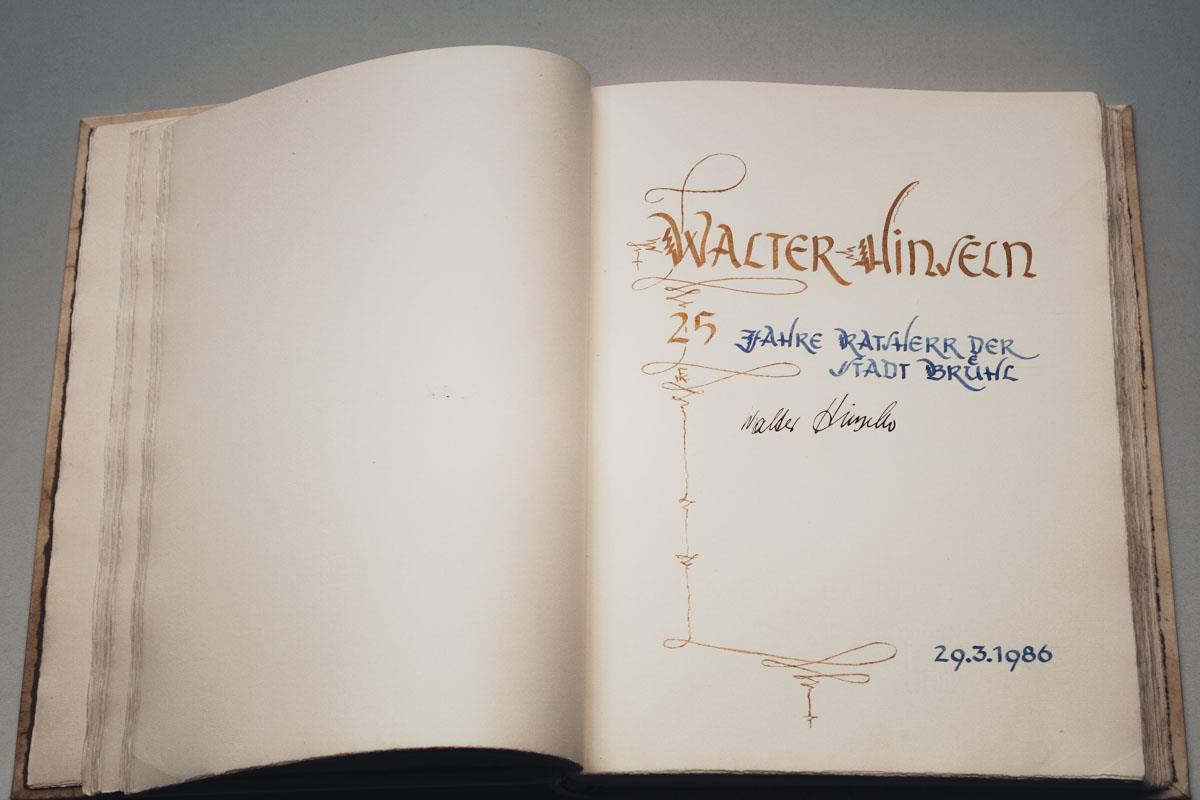 WALTER HINSELN
25 JAHRE RATSHERR DER
STADT BRÜHL
Walter Hinseln
29.3.1986